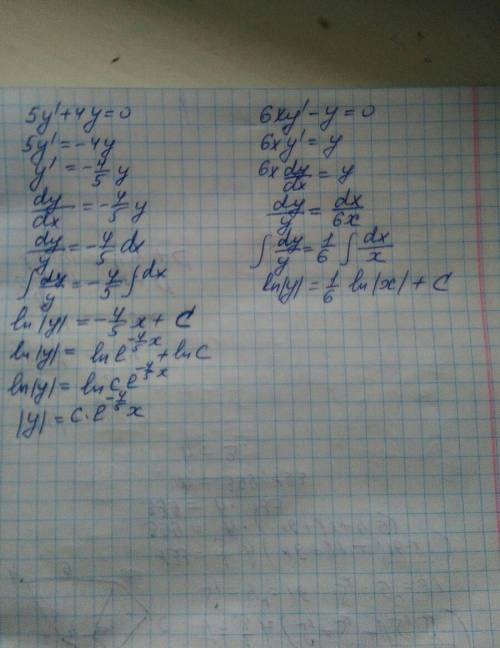 5y' + 4y = 0
5y' = -4y
y' = -4/5 y
dy/dx = -4/5 y
dy/y = -4/5 dx
∫ dy/y = -4/5 ∫ dx
ln|y| = -4/5 x + C
ln|y| = ln e^(-4/5 x) + ln C
ln|y| = ln C e^(-4/5 x)
|y| = C · e^(-4/5) x
6xy' - y = 0
6xy' = y
6x dy/dx = y
dy/y = dx/6x
∫ dy/y = 1/6 ∫ dx/x
ln|y| = 1/6 ln|x| + C